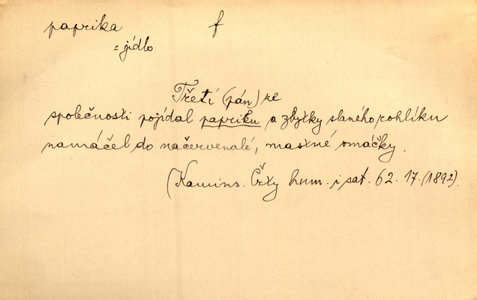 paprika f
= jídlo
Třetí (pán) ze
společnosti pojídal papriku a zbytky slaného rohlíku
namáčel do načervenalé, mastné omáčky.
(Kamins. Črty hum. i sat. 62. 17. (1892).